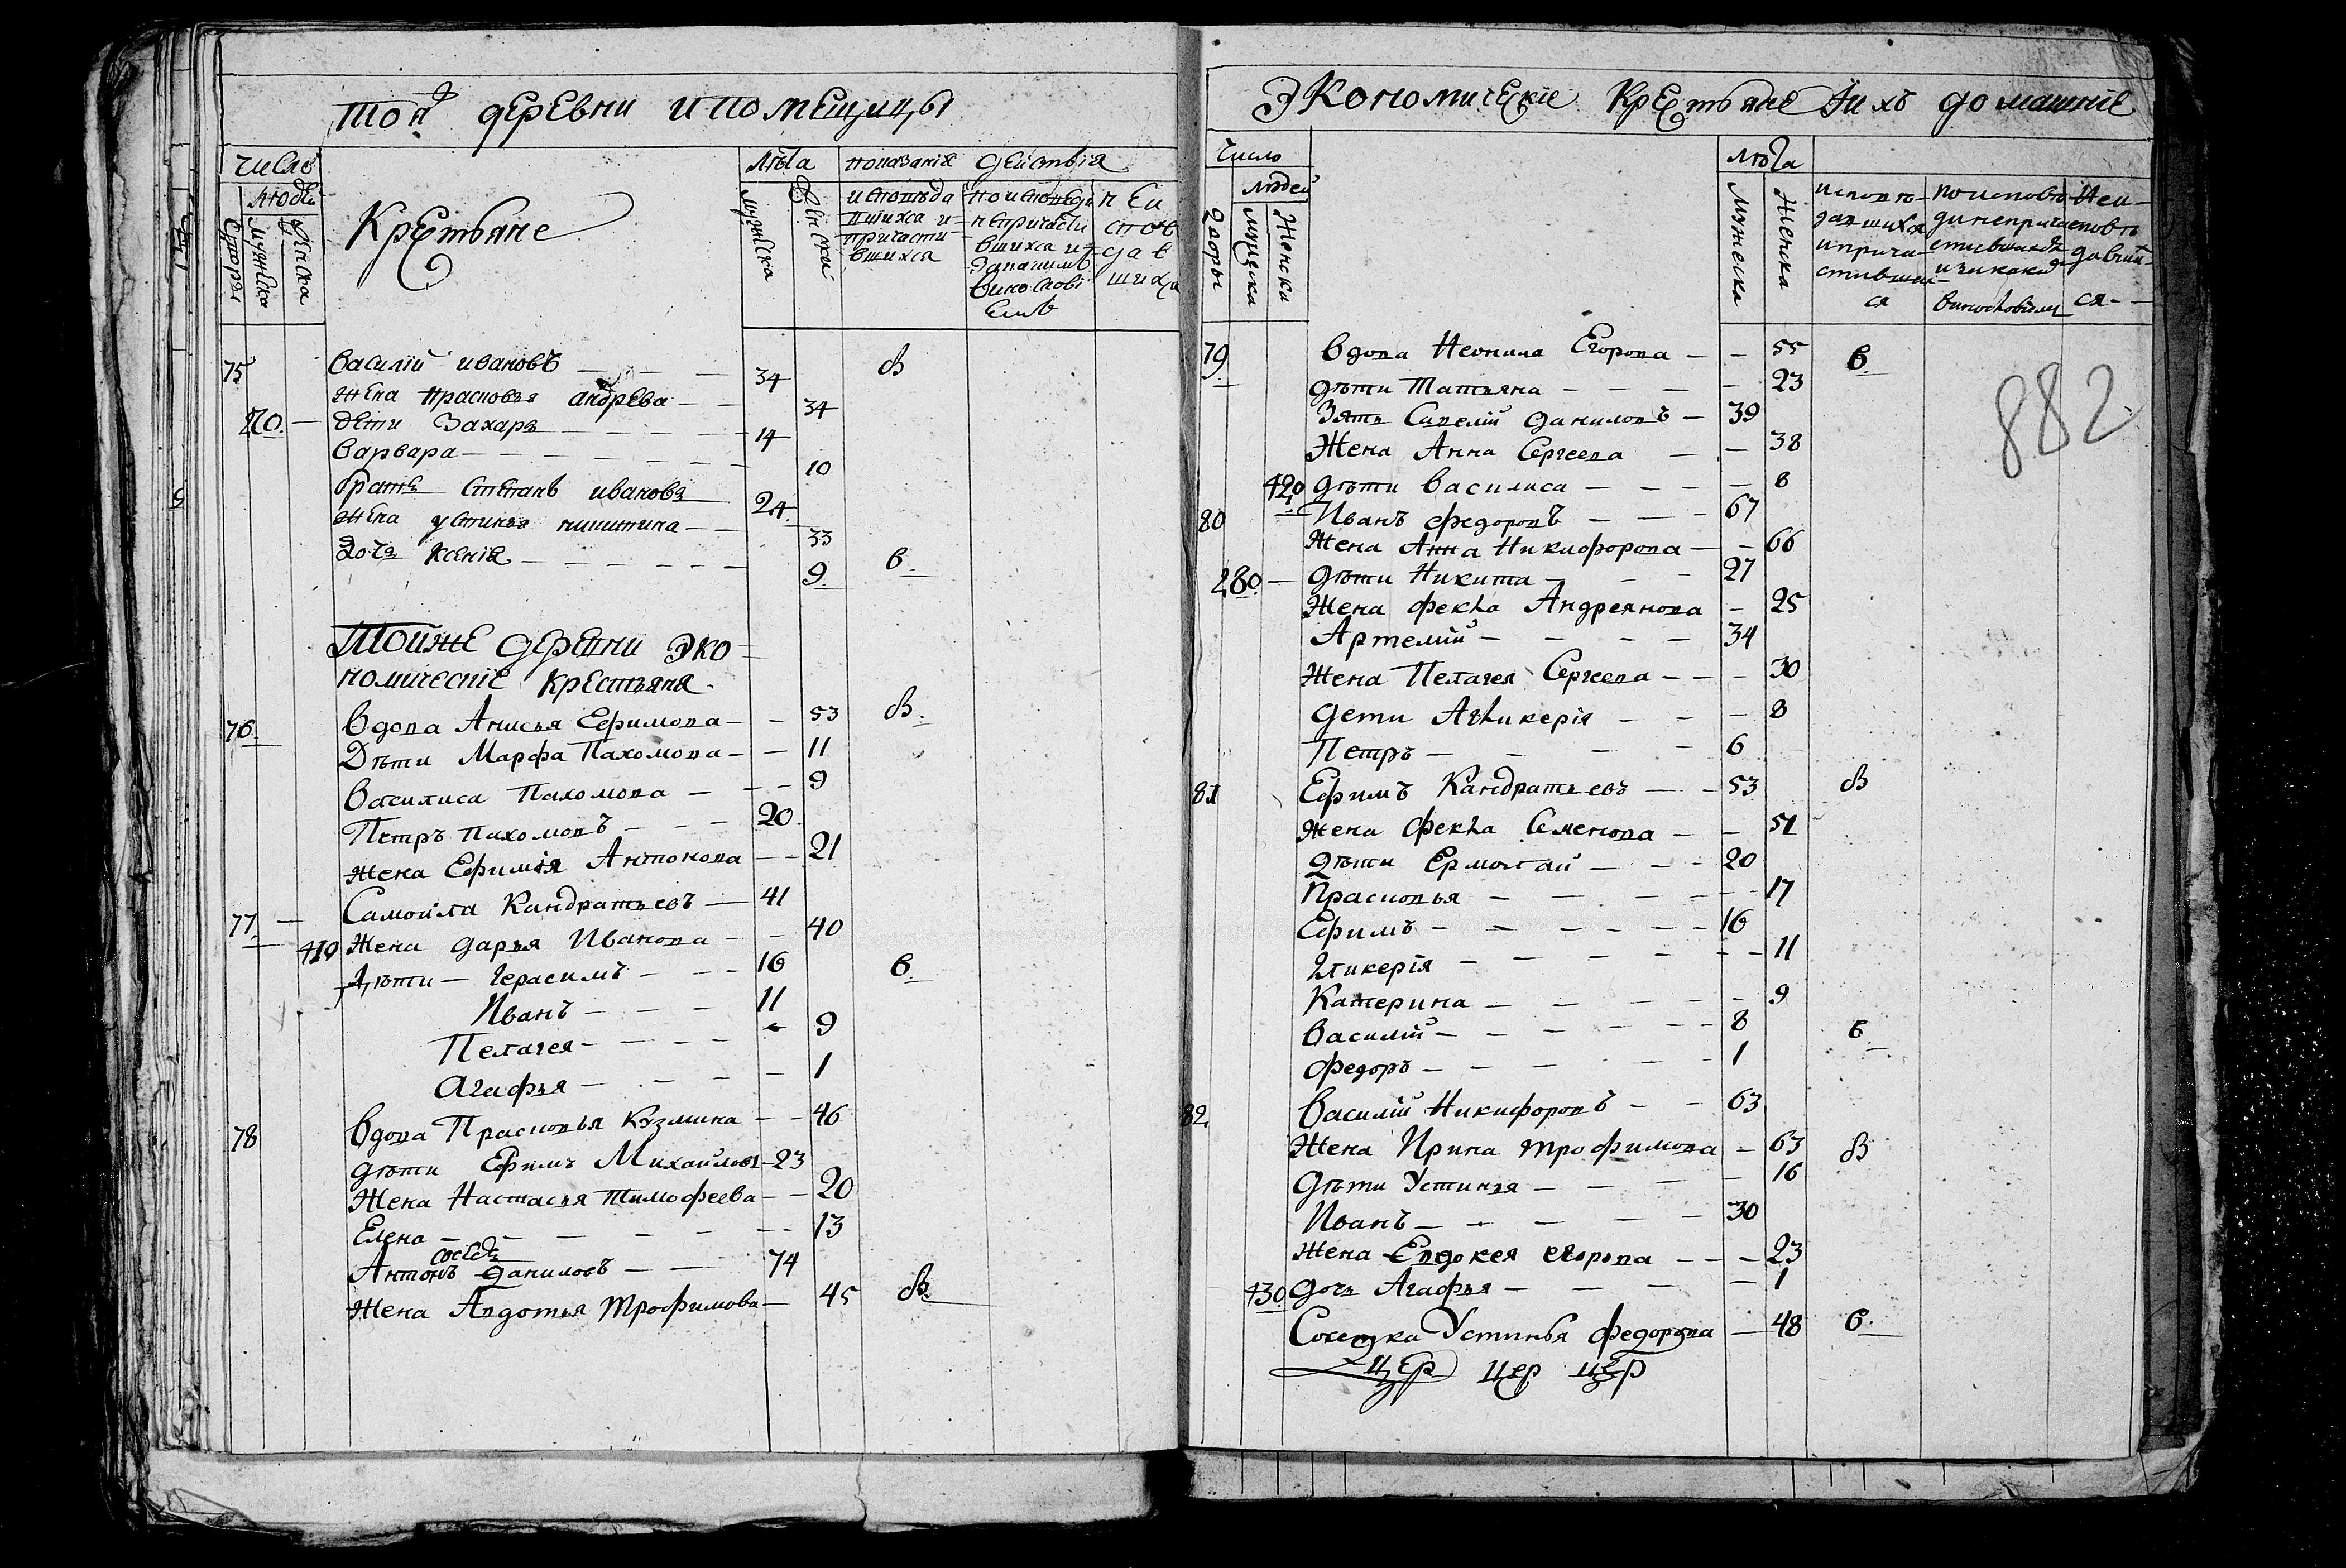 той деревни и помещицы
число
людей
дворы
мужеска
женска
Крестьяне
лѣта
мужеска
женски
показанїя действїя
исповѣда
вшихся и
причасти
вшихся
по исповеди
непричасти
вшихся и
винословї
емъ
неи
спов
дав
шихся
75
Василїй ивановъ — — — 34 в
жена прасковья андреева — — 34
270. — дети Захаръ — — — — 14
варвара — — — — — 10
братъ степанъ ивановъ 24
жена устинья никитина — — 33
дочь ксенїя — — — — — 9 в.
Тойже деревни эко
номическїе крестьяня
76. Вдова Анисья Ефимова — — 53 в.
Дѣти Марфа Пахомова — — 11
Василиса Пахомова — — — 9
Петръ пахомовъ — — — 20
жена Ефимїя Антонова — — 21
77. — Самойла Кандратьевъ — 41
410 Жена дарья Иванова — — 40
Дѣти — Герасимъ — — — 16 в.
Иванъ — — — 11
Пелагея — — — — 9
Агафья — — — — 1
78 Вдова Прасковья Кузмина — — 46
дѣти Ефимъ Михайловъ — 23
Жена Настасья тимофеева — — 20
Елена — — — — — — 13
соседъ
Антонъ даниловъ — — 74
Жена Авдотья трофимова — 45 в.
Экономическїе Крестьяне и ихъ домашнїе
Число
людей
дворы
мужеска
Женски
лѣта
Мужеска
Женска
исповѣ-
давшихся
и прича-
стивших-
ся
по исповѣ-
ди неприча
стившихся
винословїем
Неи-
сповѣ
давших-
ся —
882
79. Вдова Неонила Егорова — — 55 в.
дѣти Татьяна — — — — 23
Зять Савелїй даниловъ — 39
Жена Анна Сергеева — — 38
420 дѣти василиса — — — — 8
80 Иванъ федоровъ — — — 67
Жена Анна Никифорова — — 66
280. — дѣти Никита — — — 27
Жена фекла Андреянова — 25
Артемїй — — — — 34
Жена Пелагея Сергеева — — — 30
дети Агликерїя — — — 8
Петръ — — — — 6
81 Ефимъ Кандратьевъ — — 53 в
жена фекла Семенова — — 51
дѣти Ермолай — — — 20
Прасковья — — — — — 17
Ефимъ — — — — — — 16
гликерїя — — — — — — 11
Катерина — — — — — 9
Василїй — — — — — — 8 в.
федоръ — — — — — 1
82 Василїй Никифоровъ — — 63
Жена Ирина трофимова — 63 в
дѣти Устинья — — — — 16
Иванъ — — — — — 30
жена Евдокея егорова — — — 23
430. дочь Агафья — — — — 1
Соседка Устинья федорова — 48 в.
цер цер цер